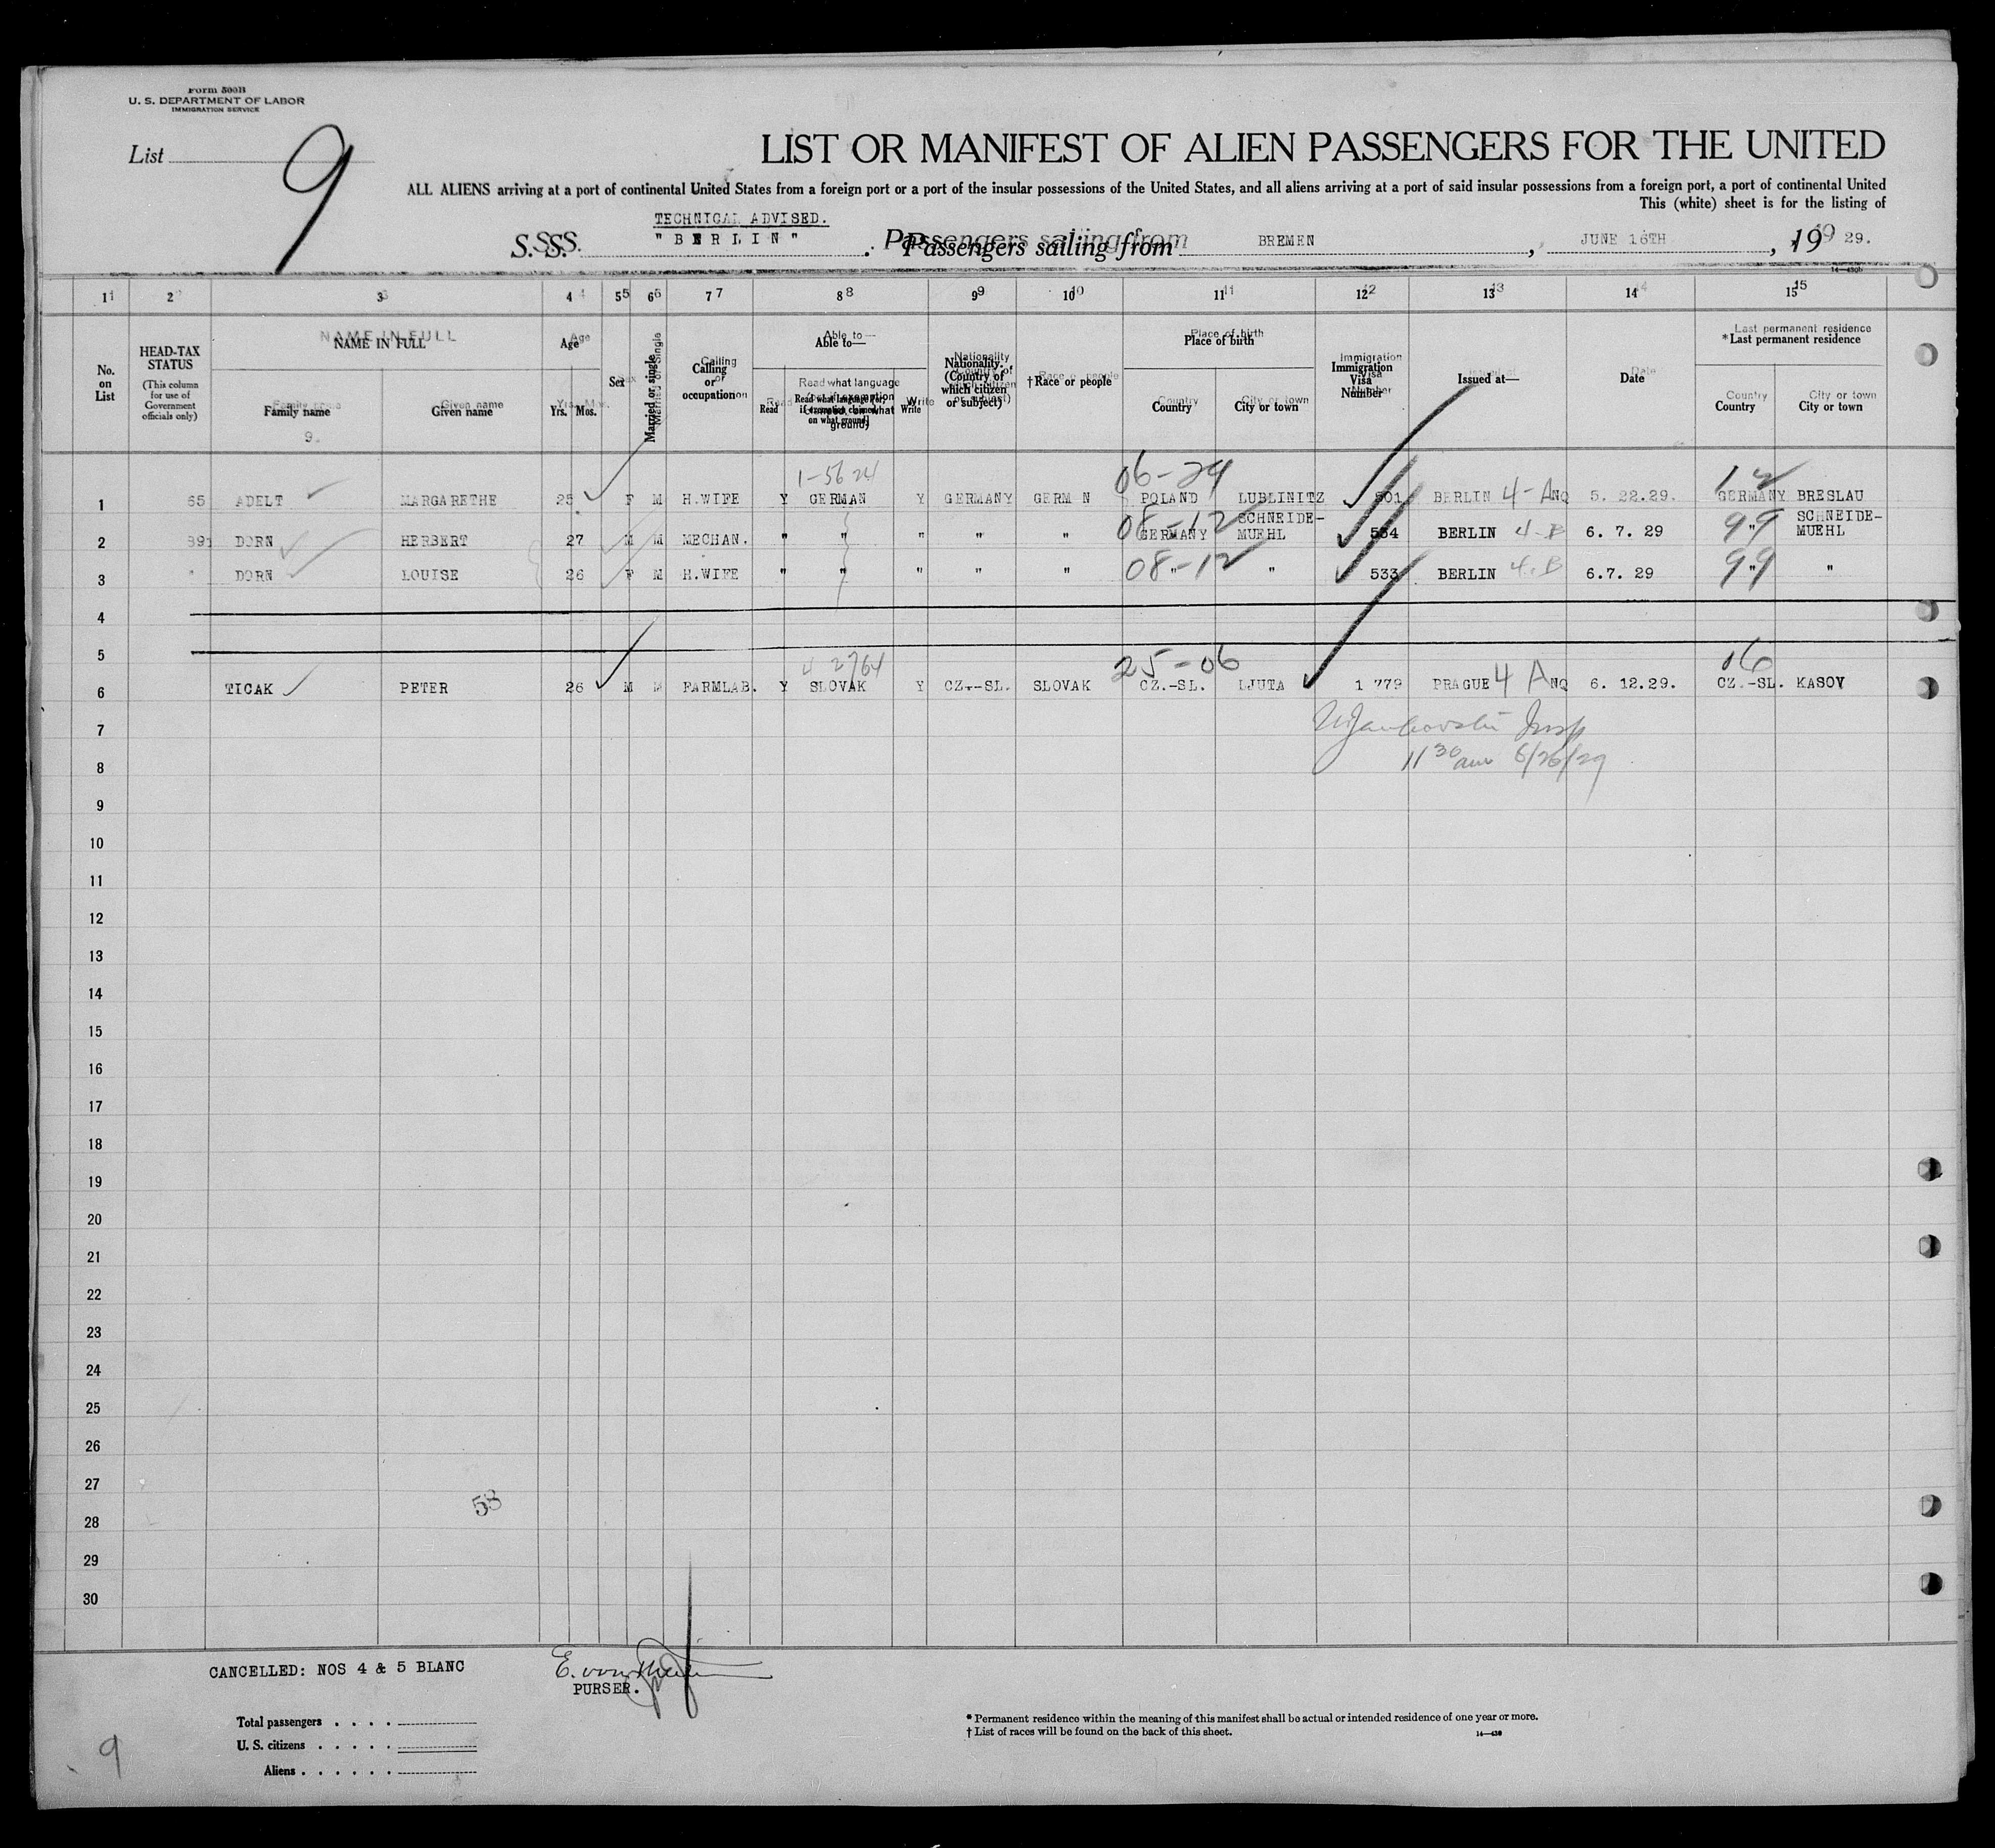 Form 500B
U. S. DEPARTMENT OF LABOR
IMMIGRATION SERVICE
List
9
LIST OR MANIFEST OF ALIEN PASSENGERS FOR THE UNITED
ALL ALIENS arriving at a port of continental United States from a foreign port or a port of the insular possessions of the United States, and all aliens arriving at a port of said insular possessions from a foreign port, a port of continental United
This (white) sheet is for the listing of
TECHNICAL ADVISED.
S. S. "BERLIN" . Passengers sailing from BREMEN , JUNE 16TH , 19 29.
1 2 3 4 5 6 7 8 9 10 11 12 13 14 15
No. on List
HEAD-TAX STATUS
(This column for use of Government officials only)
NAME IN FULL
Family name
Given name
Age
Yrs. Mos.
Sex
Married or single
Calling or occupation
Able to—
Read
Read what language [or, if exemption claimed, on what ground]
Write
Nationality. (Country of which citizen or subject)
†Race or people
Place of birth
Country
City or town
Immigration Visa Number
Issued at—
Date
*Last permanent residence
Country
City or town
9.
1-56 24 06-24 12
1 65 ADELT MARGARETHE 25 F M H.WIFE Y GERMAN Y GERMANY GERM N POLAND LUBLINITZ 501 BERLIN 4-A NQ 5. 22.29. GERMANY BRESLAU
2 DORN HERBERT 27 M M MECHAN. " " " " " 08-12 GERMANY SCHNEIDE-MUEHL 534 BERLIN 4-B 6. 7. 29 99 " SCHNEIDE-MUEHL
3 " DORN LOUISE 26 F M H.WIFE " " " " " 08-12 " " 533 BERLIN 4-B 6.7. 29 99 " "
4
5
25-06 16
6 TICAK PETER 26 M M FARMLAB. Y SLOVAK Y CZ.-SL. SLOVAK CZ.-SL. LJUTA 1 779 PRAGUE 4 A NQ 6. 12.29. CZ.-SL. KASOV
7
8 11 30 am 6/26/29
9
10
11
12
13
14
15
16
17
18
19
20
21
22
23
24
25
26
27
58
28
29
30
CANCELLED: NOS 4 & 5 BLANC
PURSER.
Total passengers . . . .
U. S. citizens . . . . .
Aliens . . . . . .
* Permanent residence within the meaning of this manifest shall be actual or intended residence of one year or more.
† List of races will be found on the back of this sheet.
9